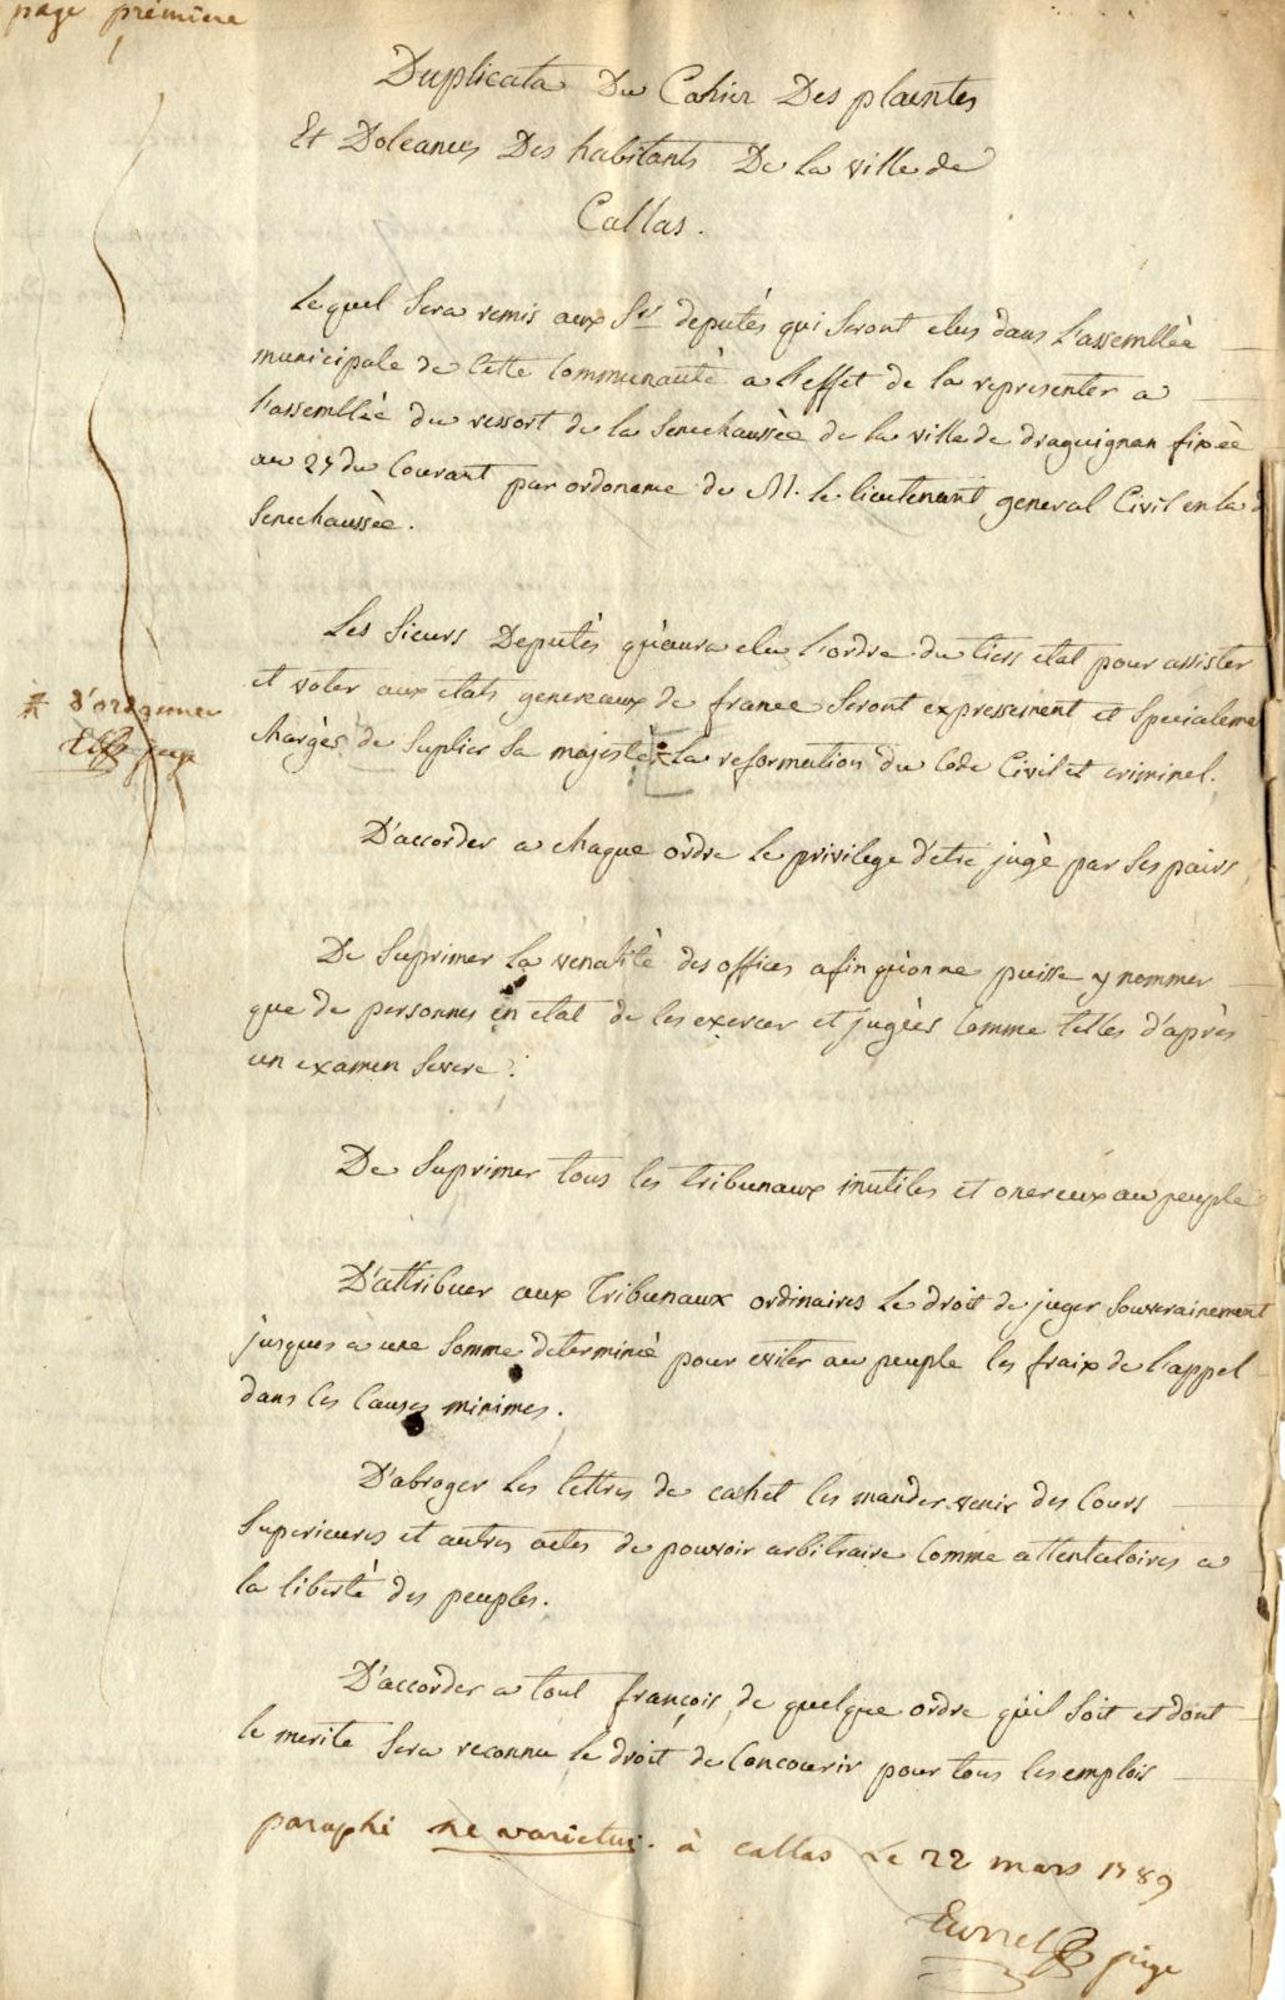 page première
Duplicata Du Cahier Des plaintes
Et Doleances Des habitants De la ville de
Callas.
Lequel Sera remis aux Srs deputés qui Seront elus dans L'assemblèe
municipale de Cette Communautè a l'effet de la representer a
l'assemblèe du ressort de la Senechaussèe de la ville de draguignan fixèe
au 27 du Courant par ordonance de M. le lieutenant general Civil en la d
Senechaussèe.
Les Sieurs Deputès qu'aura elu L'ordre du tiers etat pour assister
et voter aux etats genereaux de france Seront expressement et Specialeme
Chargès de Suplier Sa majestè * La reformation du Code Civil et criminel.
* d'ordonner
juge
D'accorder a chaque ordre le privilege d'etre jugè par Ses pairs
De Suprimer La venalitè des offices afin qu'on ne puisse y nommer
que de personnes en etat de les exercer et jugèes Comme telles d'après
un examen Severe.
De Suprimer tous les tribunaux inutiles et onereux au peuple
D'attribuer aux Tribunaux ordinaires Le droit de juger Souverainement
jusques a une Somme determinèe pour eviter au peuple les fraix de l'appel
dans les Causes minimes.
D'abroger Les lettres de cachet les mander venir des Cours
Superieures et autres actes de pouvoir arbitraire Comme attentatoires a
la libertè des peuples.
D'accorder a tout françois de quelque ordre qu'il Soit et dont
le merite Sera reconnu le droit de Concourir pour tous les emplois
paraphé ne varietur. à callas Le 22 mars 1789
juge